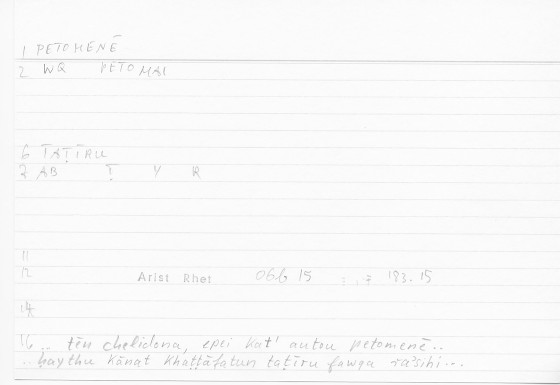 1 PETOMENĒ
2 WQ PETOMAI
6 TAṬĪRU
2 AB Ṭ Y R
11
12 Arist Rhet 06b 15 : . 183.15
14
16 .. tēn chelidona, epei kat' autou petomenē..
.. ḥaythu kānat khaṭṭāfatun taṭīru fawqa ra'sihi...